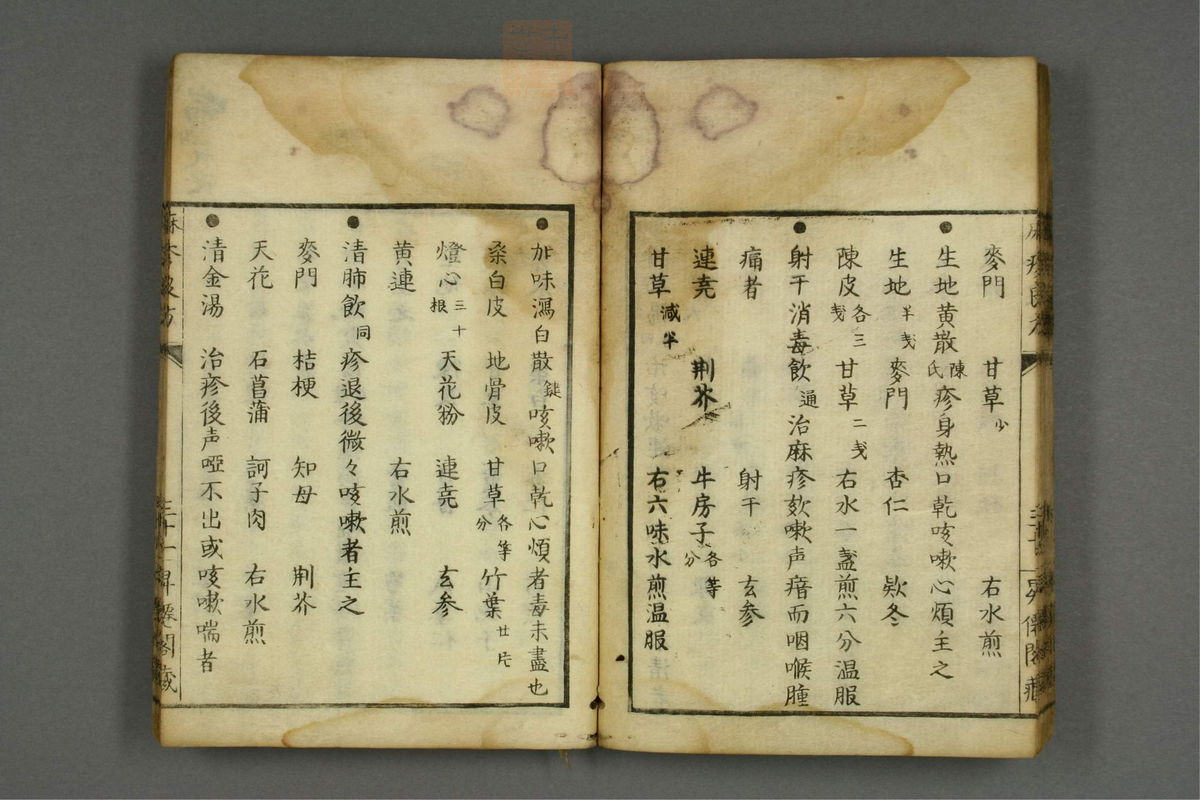 麥門　甘草少　右水煎
●生地黄散陳氏疹身熱口乾咳嗽心煩主之
生地半戔　麥門　杏仁　欵冬
陳皮各三戔　甘草二戔　右水一盞煎六分温服
●射干消毒飲通治麻疹欬嗽声瘖而咽喉腫
痛者　射干　玄参
連尭　荆芥　牛房子各等分
甘草減半　右六味水煎温服
●加味瀉白散　咳嗽口乾心煩者毒未盡也
桑白皮　地骨皮　甘草各等分　竹葉廿片
燈心三十根　天花粉　連尭　玄参
黄連　右水煎
●清肺飲同疹退後微々咳嗽者主之
麥門　桔梗　知母　荆芥
天花　石菖蒲　訶子肉　右水煎
●清金湯　治疹後声啞不出或咳嗽喘者